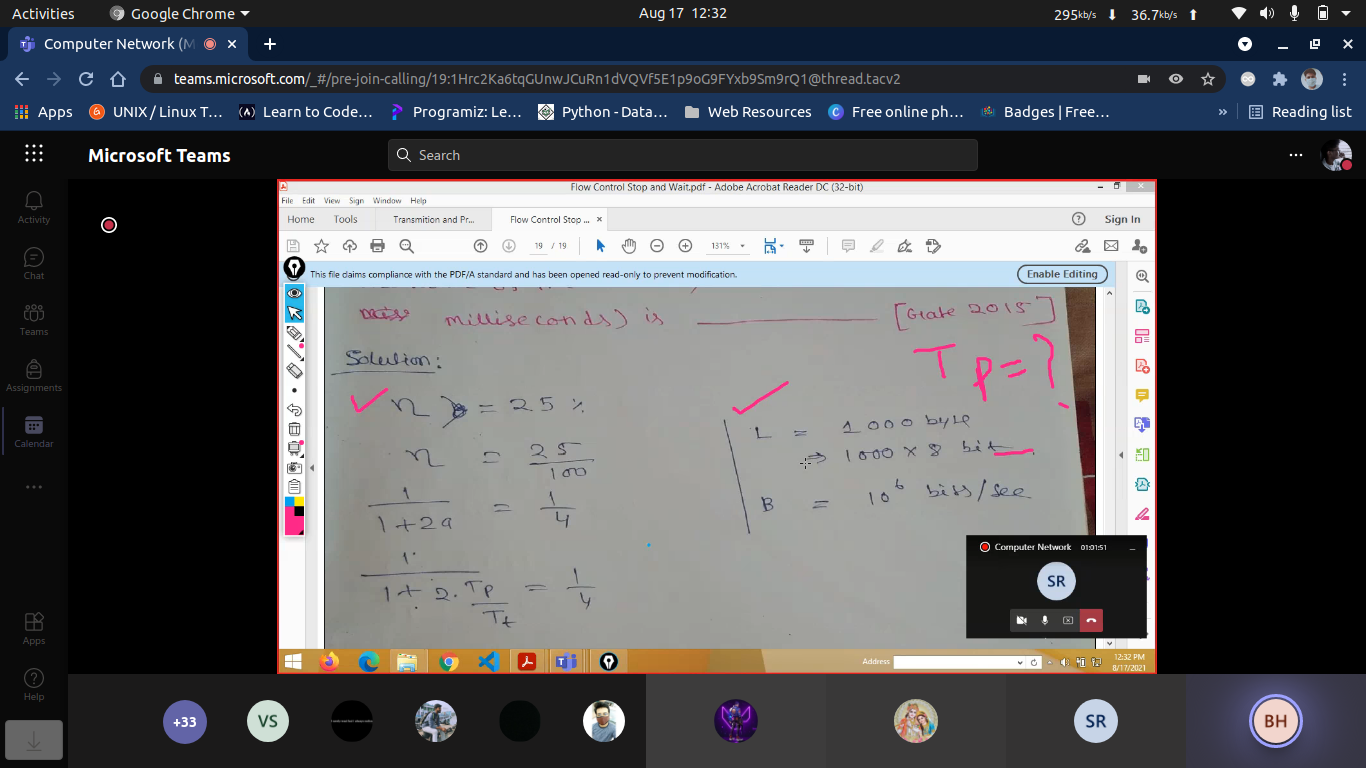 Activities Google Chrome Aug 17 12:32 295kb/s 36.7kb/s
Computer Network (M
teams.microsoft.com/_#/pre-join-calling/19:1Hrc2Ka6tqGUnwJCuRn1dVQVf5E1p9oG9FYxb9Sm9rQ1@thread.tacv2
Apps UNIX / Linux T... Learn to Code... Programiz: Le... Python - Data... Web Resources Free online ph... Badges | Free... » Reading list
Microsoft Teams Search
Activity
Chat
Teams
Assignments
Calendar
Apps
Help
Flow Control Stop and Wait.pdf - Adobe Acrobat Reader DC (32-bit)
File Edit View Sign Window Help
Home Tools Transmition and Pr... Flow Control Stop ... × Sign In
19 / 19 131%
This file claims compliance with the PDF/A standard and has been opened read-only to prevent modification. Enable Editing
milliseconds) is ________ [Gate 2015]
Tp = ?
Solution:
η = 25 %
η = 25/100
1/(1+2a) = 1/4
1/(1+2.Tp/Tt) = 1/4
L = 1000 byte
⇒ 1000 × 8 bit
B = 10⁶ bits/sec
Computer Network 01:01:51
SR
Address
12:32 PM
8/17/2021
+33 VS SR BH